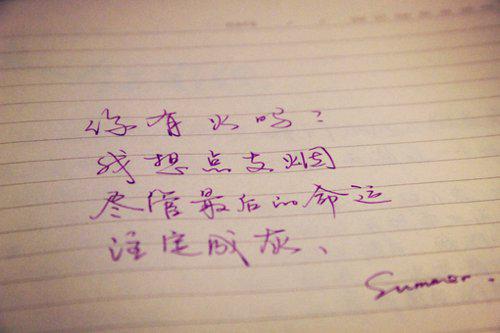 你有火吗?
我想点支烟
尽管最后的命运
注定成灰、
Summer.